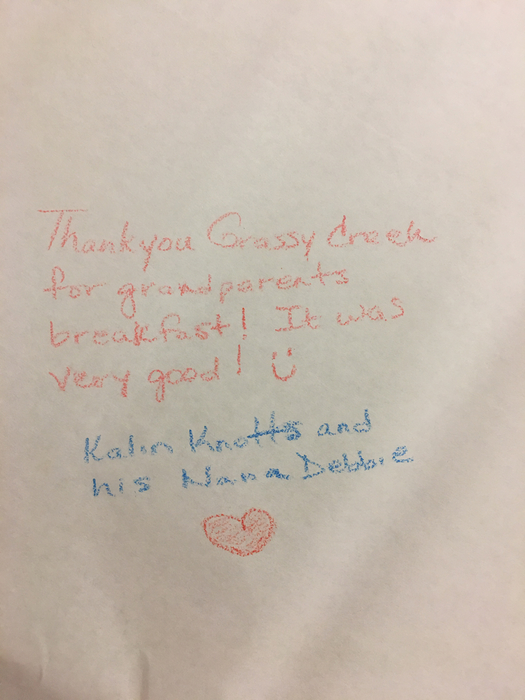 Thankyou Grassy Creek
for grandparents
breakfast! It was
very good! :)
Kalin Knotts and
his Nana Debbie